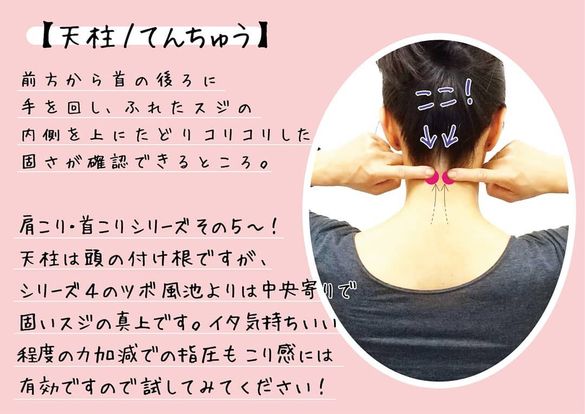 【天柱/てんちゅう】
前方から首の後ろに
手を回し、ふれたスジの
内側を上にたどりコリコリした
固さが確認できるところ。
ここ!
肩こり・首こりシリーズその5〜!
天柱は頭の付け根ですが、
シリーズ4のツボ風池よりは中央寄りで
固いスジの真上です。イタ気持ちいい
程度の力加減での指圧もこり感には
有効ですので試してみてください!